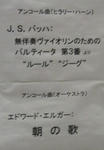 アンコール曲(ヒラリー・ハーン)
J. S. バッハ:
無伴奏ヴァイオリンのための
パルティータ 第3番 より
"ルール" "ジーグ"
アンコール曲(オーケストラ)
エドワード・エルガー:
朝の歌